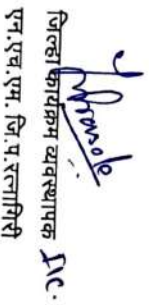 जिल्हा कार्यक्रम व्यवस्थापक I/C.
एन.एच.एम. जि.प.रत्नागिरी